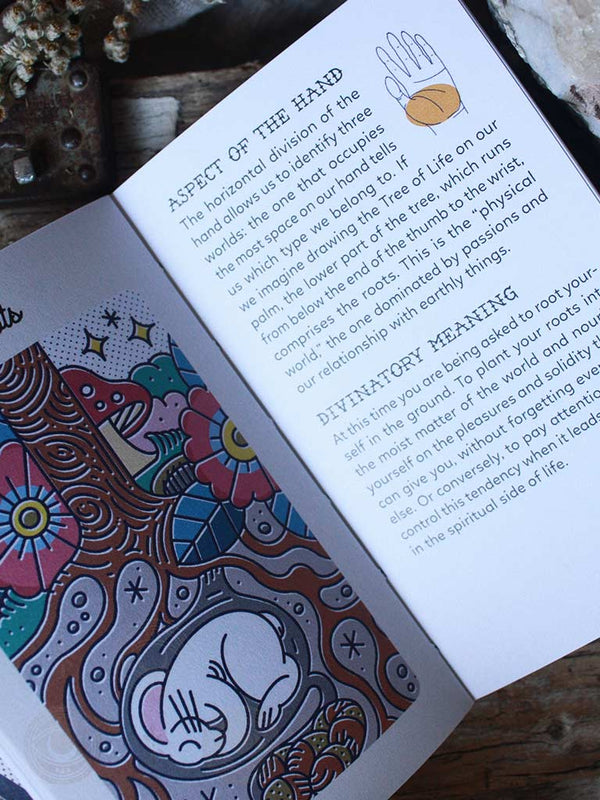 ASPECT OF THE HAND
The horizontal division of the
hand allows us to identify three
worlds: the one that occupies
the most space on our hand tells
us which type we belong to. If
we imagine drawing the Tree of Life on our
palm, the lower part of the tree, which runs
from below the end of the thumb to the wrist,
comprises the roots. This is the "physical
world," the one dominated by passions and
our relationship with earthly things.
DIVINATORY MEANING
At this time you are being asked to root your-
self in the ground. To plant your roots into
the moist matter of the world and
yourself on the pleasures and solidity
can give you, without forgetting
else. Or conversely, to pay
control this tendency when it leads
in the spiritual side of life.